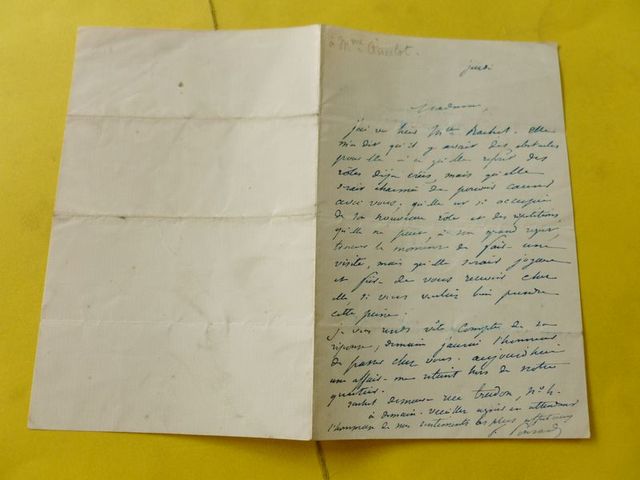 à Mme Ancelot.
jeudi
Madame,
j'ai vu hier Mlle Rachel. Elle
m'a dit qu'il y avait des obstacles
pour elle à ce qu'elle reprît des
rôles déjà créés, mais qu'elle
serait charmée de pouvoir causer
avec vous; qu'elle est si occupée
de son nouveau rôle et des répétitions,
qu'elle ne peut, à son grand regret,
trouver le moment de faire une
visite, mais qu'elle serait joyeuse
et fière de vous recevoir chez
elle si vous vouliez bien prendre
cette peine.
je vous rends vite compte de sa
réponse; demain j'aurai l'honneur
de passer chez vous. aujourd'hui
une affaire me retient hors de notre
quartier.
rachel demeure rue trudon, no 4.
à demain. veuillez agréer en attendant
l'hommage de mes sentiments les plus affectueux
Ponsard